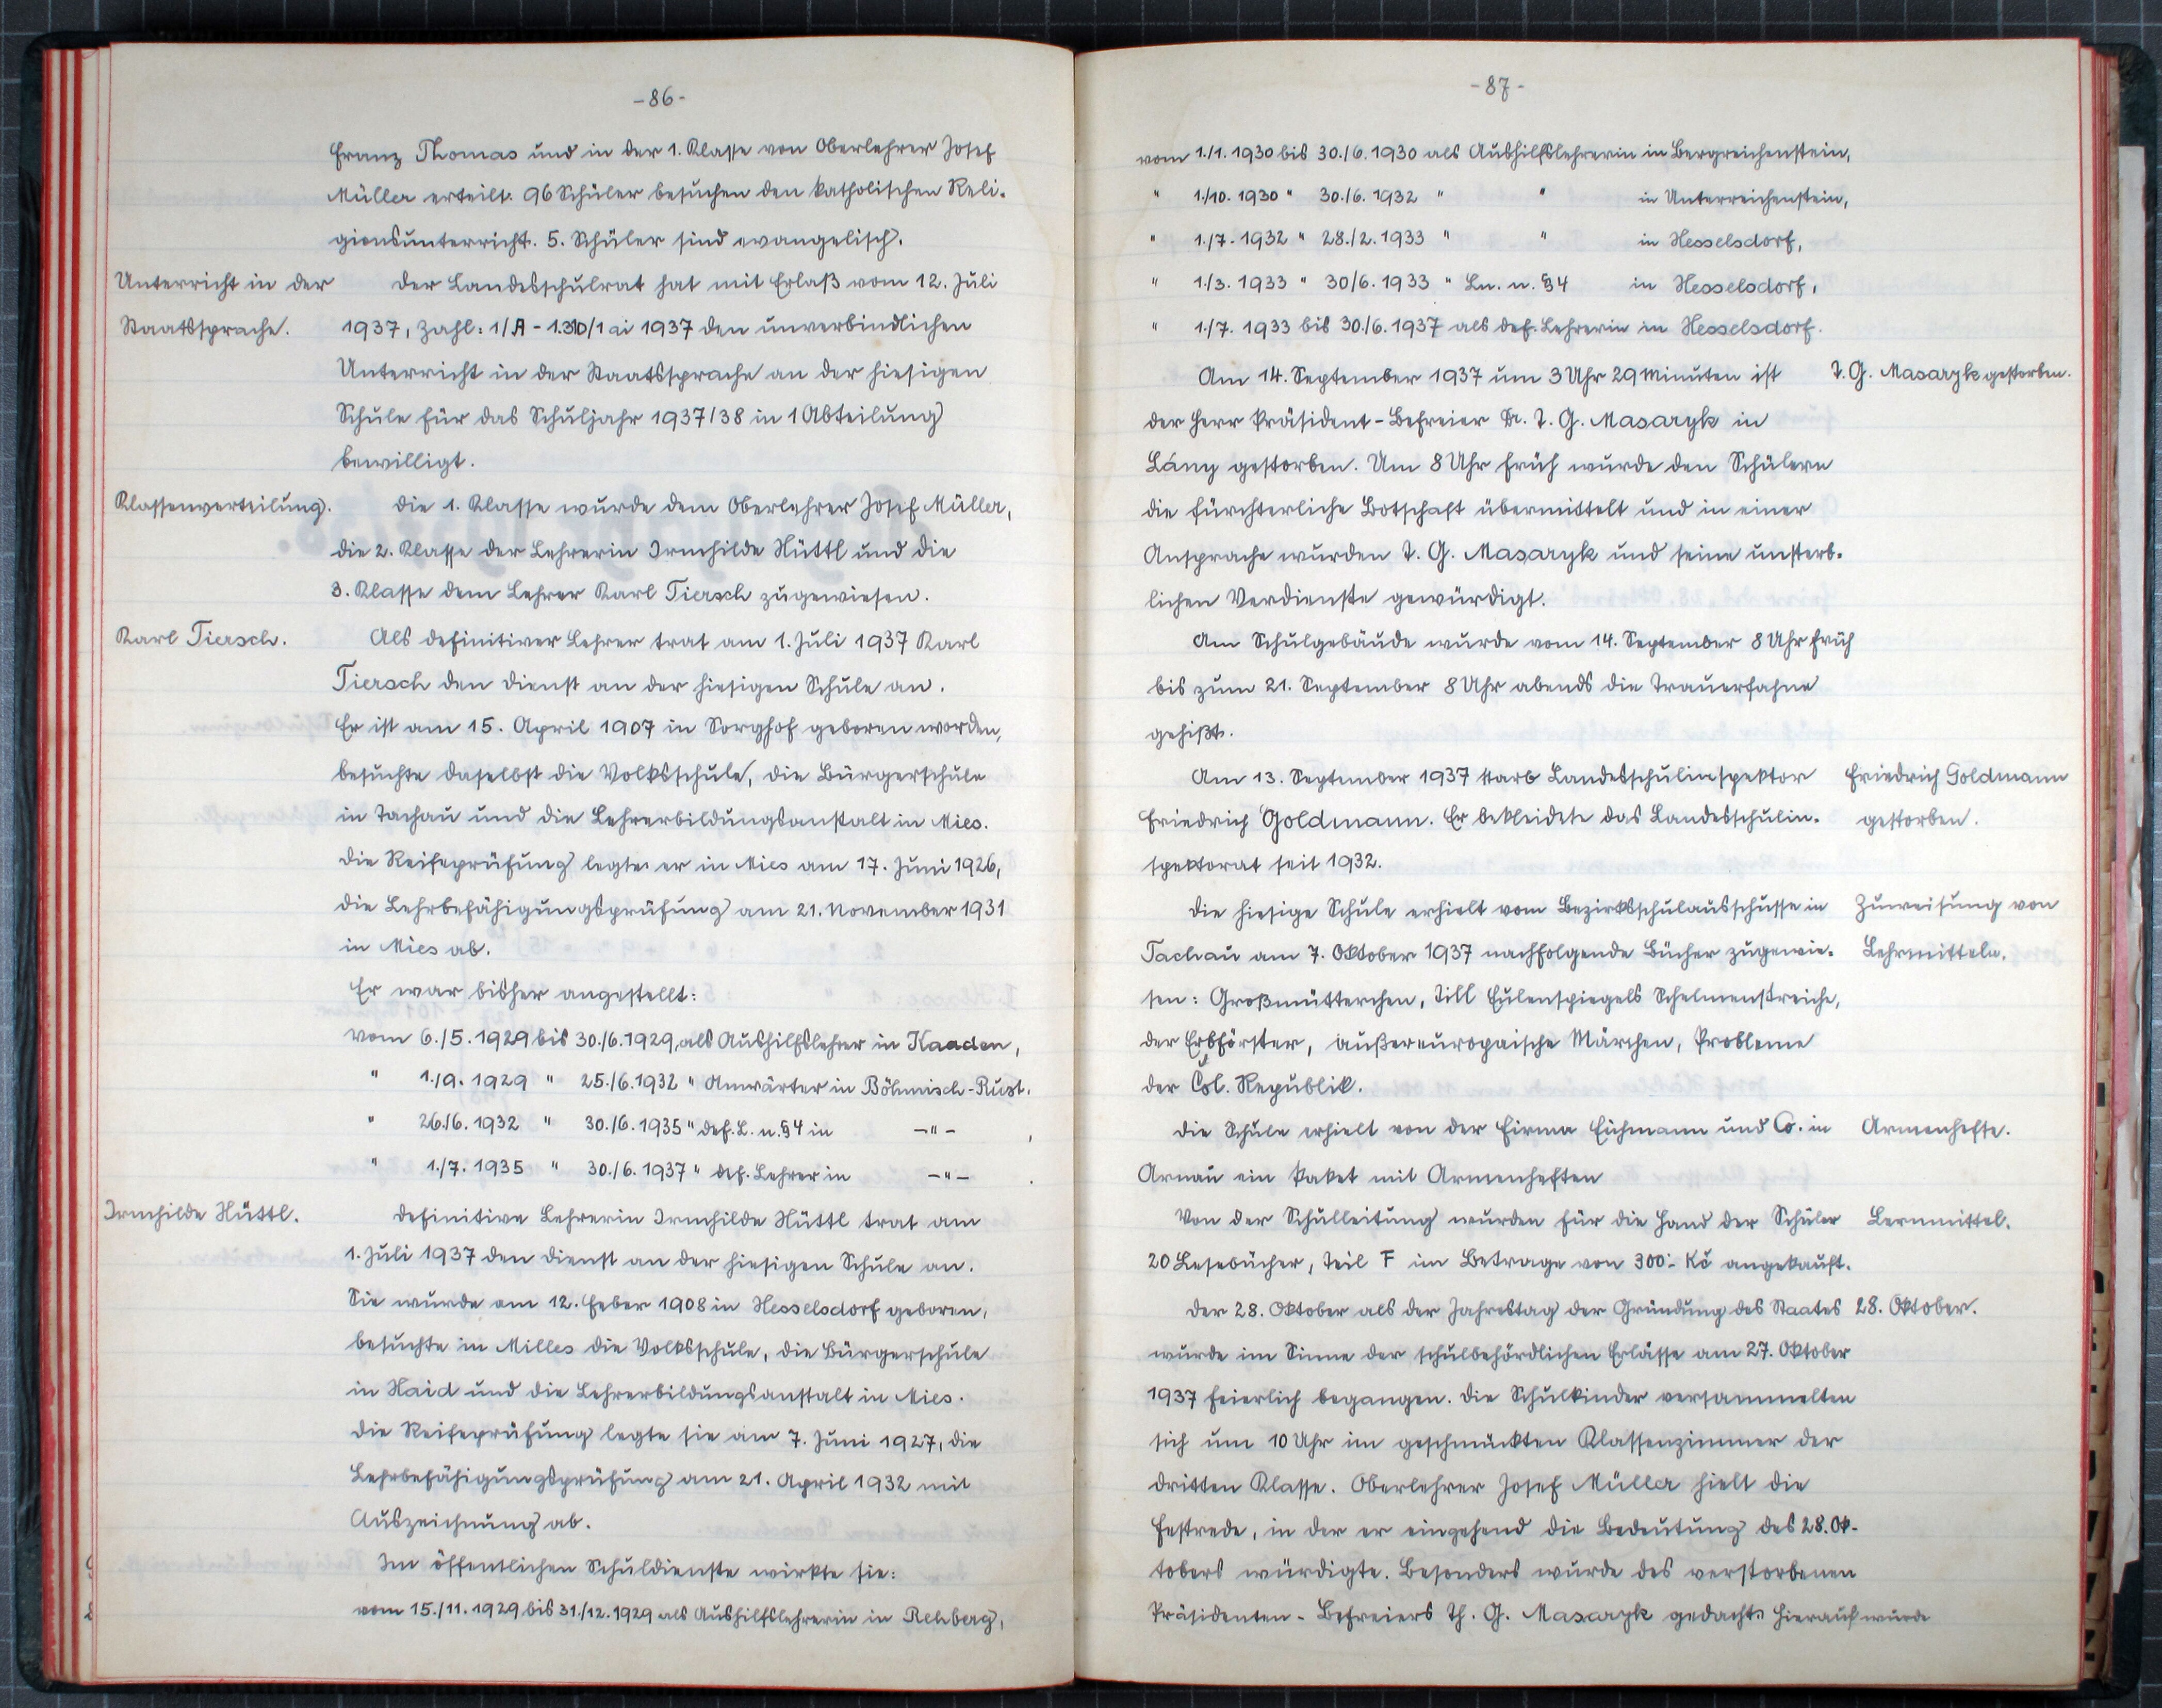 -86-
Franz Thomas und in der 1. Klasse von Oberlehrer Josef
Müller erteilt. 96 Schüler besuchen den katholischen Reli-
gionsunterricht. 5. Schüler sind evangelisch.
Unterricht in der
Staatssprache.
Der Landesschulrat hat mit Erlaß vom 12. Juli
1937, Zahl: 1/A - 1.310/1 ai 1937 den unverbindlichen
Unterricht in der Staatssprache an der hiesigen
Schule für das Schuljahr 1937/38 in 1 Abteilung
bewilligt.
Klassenverteilung.
Die 1. Klasse wurde dem Oberlehrer Josef Müller,
die 2. Klasse der Lehrerin Irmhilde Hüttl und die
3. Klasse dem Lehrer Karl Tiersch zugewiesen.
Karl Tiersch.
Als definitiver Lehrer trat am 1. Juli 1937 Karl
Tiersch den Dienst an der hiesigen Schule an.
Er ist am 15. April 1907 in Sorghof geboren worden,
besuchte daselbst die Volksschule, die Bürgerschule
in Tachau und die Lehrerbildungsanstalt in Mies.
Die Reifeprüfung legte er in Mies am 17. Juni 1926,
die Lehrbefähigungsprüfung am 21. November 1931
in Mies ab.
Er war bisher angestellt:
vom 6./5. 1929 bis 30./6. 1929, als Aushilfslehrer in Kaaden,
" 1./9. 1929 " 25./6. 1932 " Anwärter in Böhmisch-Rust.
" 26./6. 1932 " 30./6. 1935 " def. L. n. §4 in -"- ,
" 1./7. 1935 " 30./6. 1937 " def. Lehrer in -"- .
Irmhilde Hüttl.
Definitive Lehrerin Irmhilde Hüttl trat am
1. Juli 1937 den Dienst an der hiesigen Schule an.
Sie wurde am 12. Feber 1908 in Hesselsdorf geboren,
besuchte in Milles die Volksschule, die Bürgerschule
in Haid und die Lehrerbildungsanstalt in Mies.
Die Reifeprüfung legte sie am 7. Juni 1927, die
Lehrbefähigungsprüfung am 21. April 1932 mit
Auszeichnung ab.
Im öffentlichen Schuldienste wirkte sie:
vom 15./11. 1929 bis 31./12. 1929 als Aushilfslehrerin in Rehberg,
-87-
vom 1./1. 1930 bis 30./6. 1930 als Aushilfslehrerin in Bergreichenstein,
" 1./10. 1930 " 30./6. 1932 " " in Unterreichenstein,
" 1./7. 1932 " 28./2. 1933 " " in Hesselsdorf,
" 1./3. 1933 " 30/6. 1933 " Ln. n. §4 in Hesselsdorf,
" 1./7. 1933 bis 30./6. 1937 als def. Lehrerin in Hesselsdorf.
Am 14. September 1937 um 3 Uhr 29 Minuten ist
T. G. Masaryk gestorben.
der Herr Präsident-Befreier Dr. T. G. Masaryk in
Lány gestorben. Um 8 Uhr früh wurde den Schülern
die fürchterliche Botschaft übermittelt und in einer
Ansprache wurden T. G. Masaryk und seine unsterb-
lichen Verdienste gewürdigt.
Am Schulgebäude wurde vom 14. September 8 Uhr früh
bis zum 21. September 8 Uhr abends die Trauerfahne
gehißt.
Am 13. September 1937 starb Landesschulinspektor
Friedrich Goldmann. Er bekleidete das Landesschulin-
spektorat seit 1932.
Friedrich Goldmann
gestorben.
Die hiesige Schule erhielt vom Bezirksschulausschusse in
Tachau am 7. Oktober 1937 nachfolgende Bücher zugewie-
sen: Großmütterchen, Till Eulenspiegels Schelmenstreiche,
der Erbförster, außereuropaische Märchen, Probleme
der Čsl. Republik.
Zuweisung von
Lehrmitteln.
Die Schule erhielt von der Firma Eichmann und Co. in
Arnau ein Paket mit Armenheften
Armenhefte.
Von der Schulleitung wurden für die Hand der Schüler
20 Lesebücher, Teil F im Betrage von 300.- Kč angekauft.
Lernmittel.
Der 28. Oktober als der Jahrestag der Gründung des Staates
28. Oktober.
wurde im Sinne der schulbehördlichen Erlässe am 27. Oktober
1937 feierlich begangen. Die Schulkinder versammelten
sich um 10 Uhr im geschmückten Klassenzimmer der
dritten Klasse. Oberlehrer Josef Müller hielt die
Festrede, in der er eingehend die Bedeutung des 28. Ok-
tobers würdigte. Besonders wurde des verstorbenen
Präsidenten-Befreiers Th. G. Masaryk gedacht. Hierauf wurde